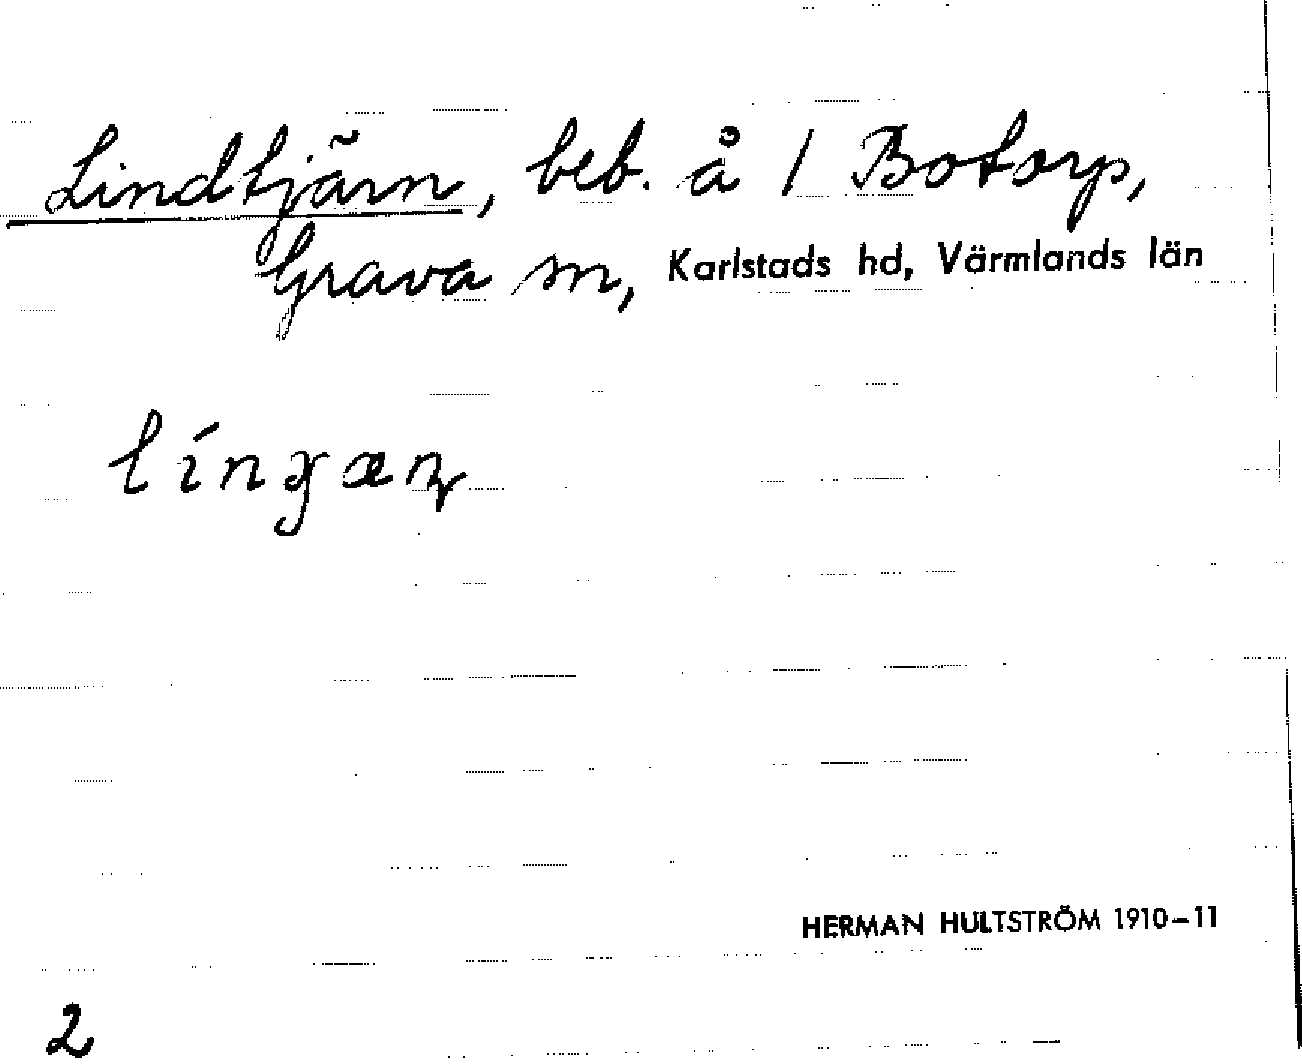 Lindtjärn, beb. å / Botorp,
Grava sn, Karlstads hd, Värmlands län
HERMAN HULTSTRÖM 1910–11
2